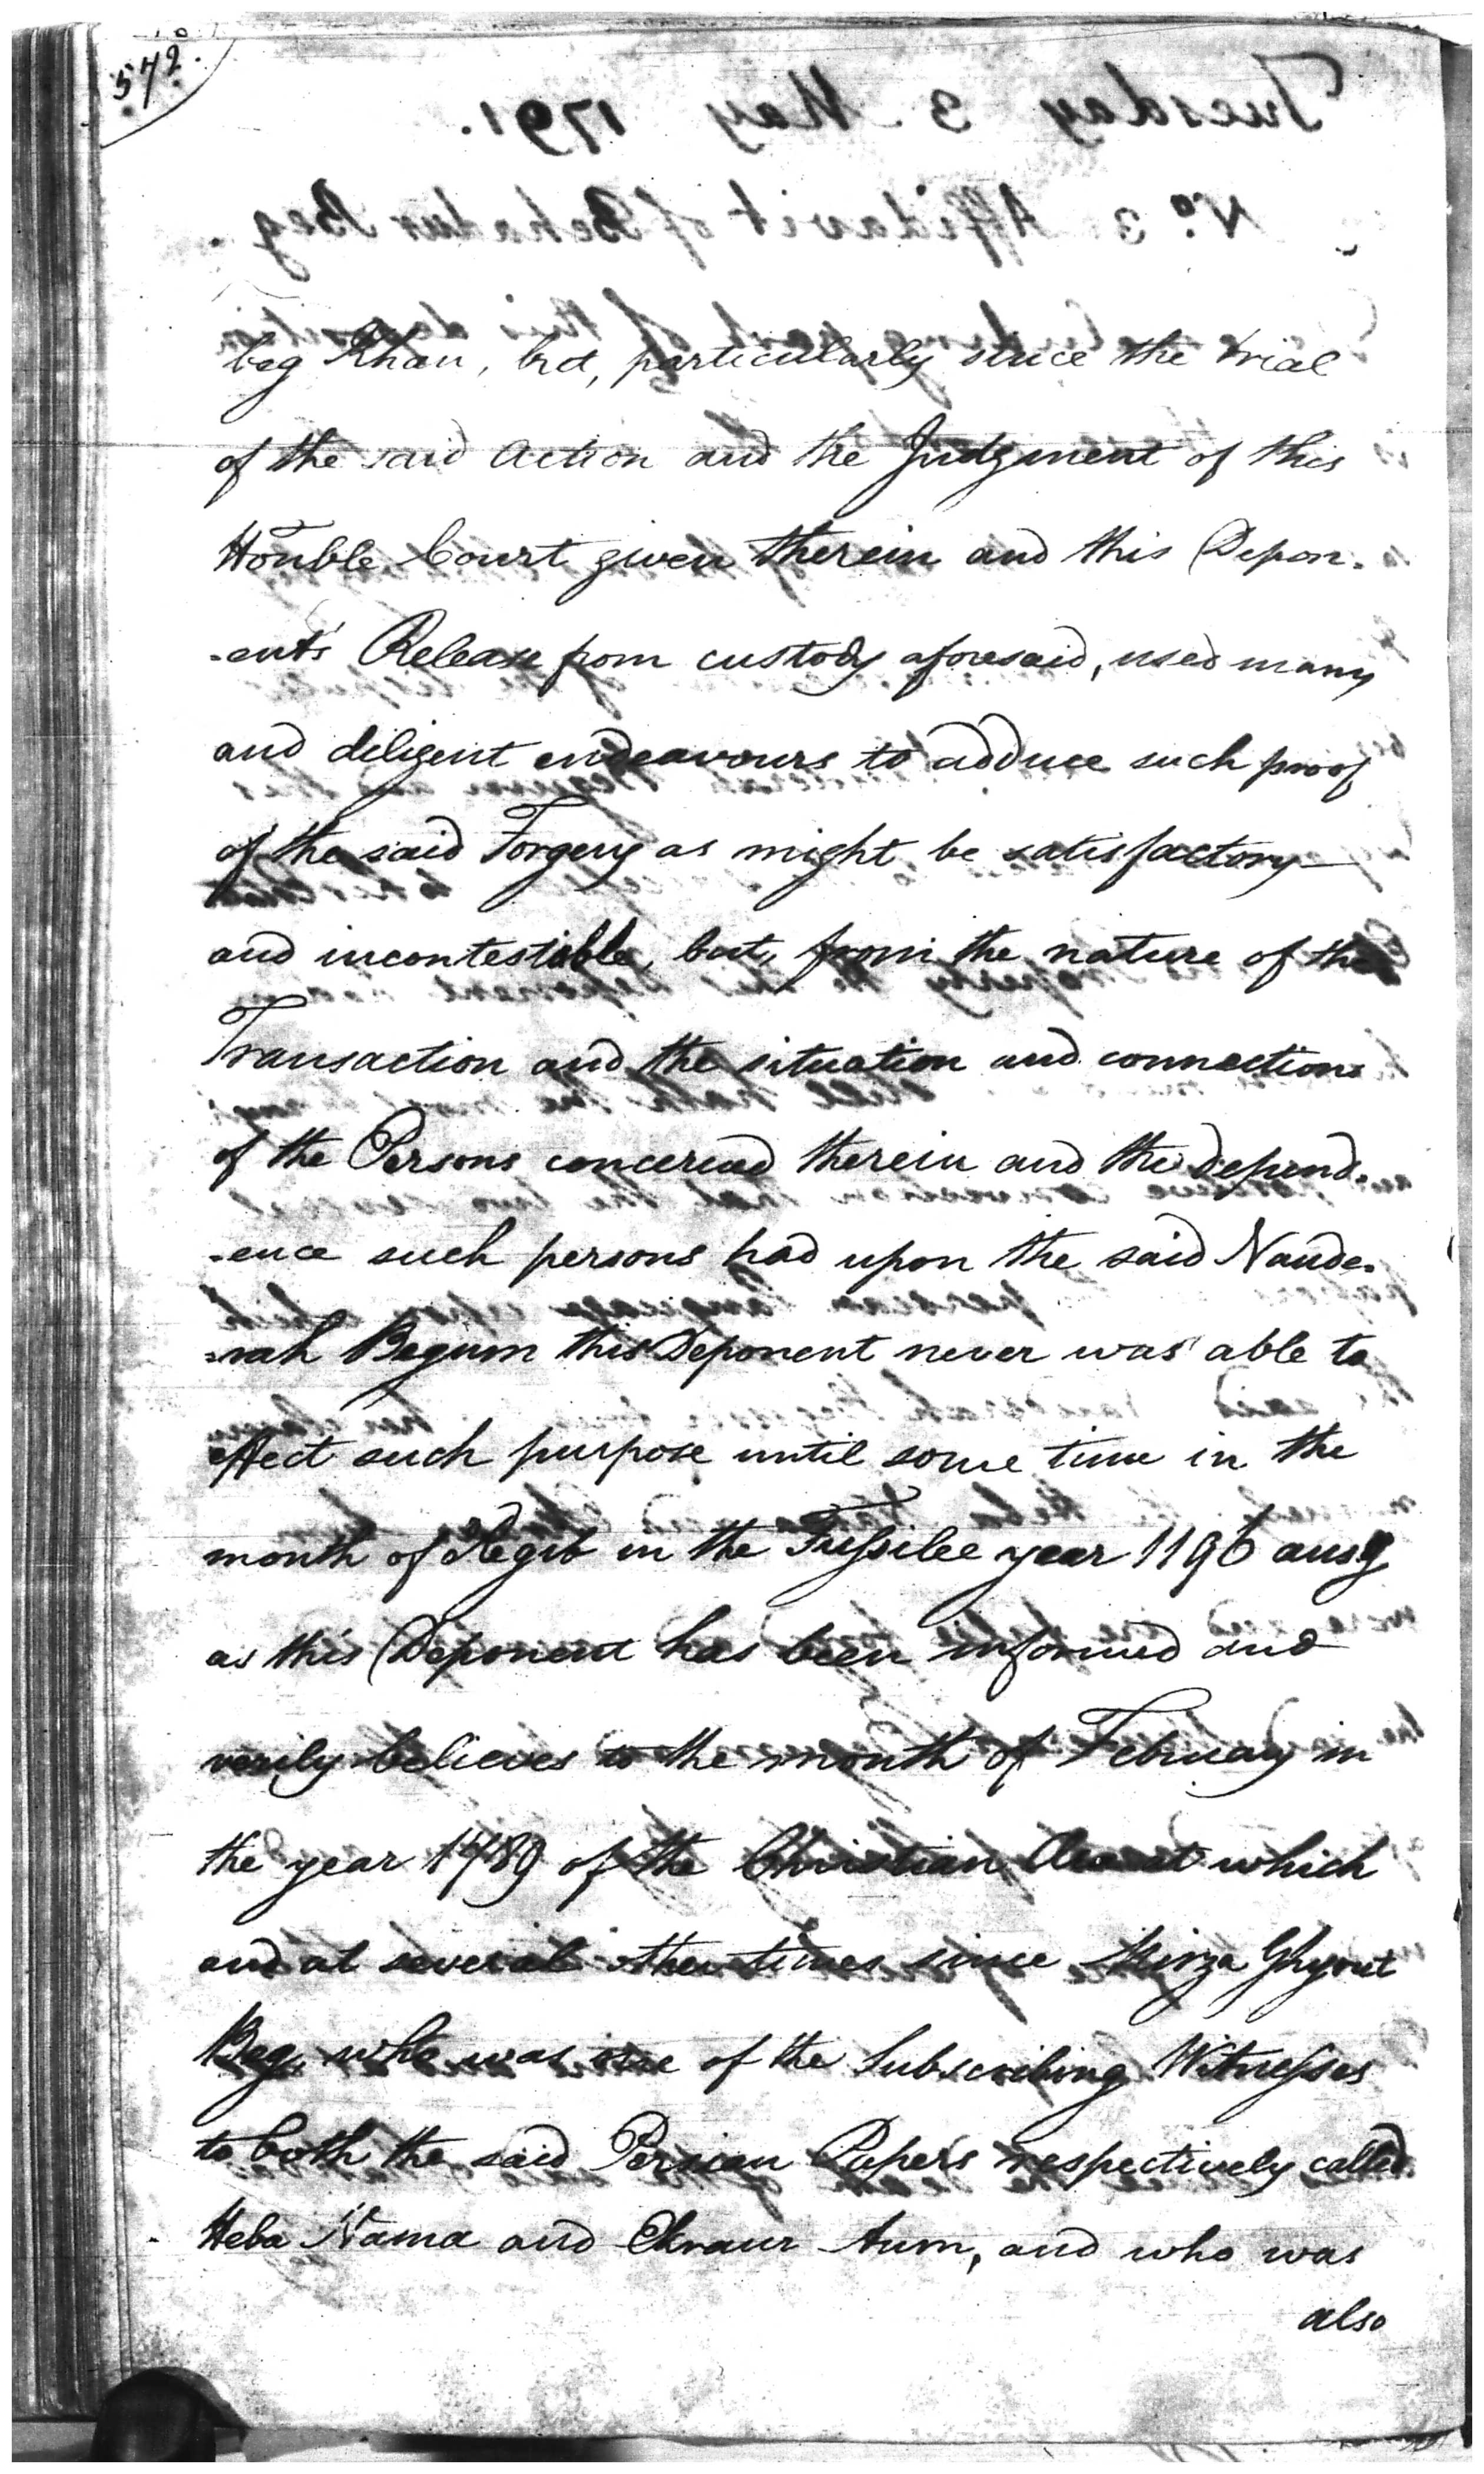 572.
beg Khan, but, particularly since the trial
of the said Action and the Judgment of this
Honble Court given therein and this Depon-
-ent's Release from custody aforesaid, used many
and diligent endeavours to adduce such proof
of the said Forgery as might be satisfactory
and incontestible, but, from the nature of the
Transaction and the situation and connections
of the Persons concerned therein and the depend-
-ence such persons had upon the said Naude-
-rah Begum this Deponent never was able to
effect such purpose until some time in the
month of Regib in the Fussilee year 1196 ansg
as this Deponent has been informed and
verily believes to the month of February in
the year 1789 of the Christian Aera at which
and at several other times since Mirza Ghyout
Beg, who was one of the Subscribing Witnesses
to both the said Persian Papers respectively called
Heba Nama and Ekraur Aum, and who was
also